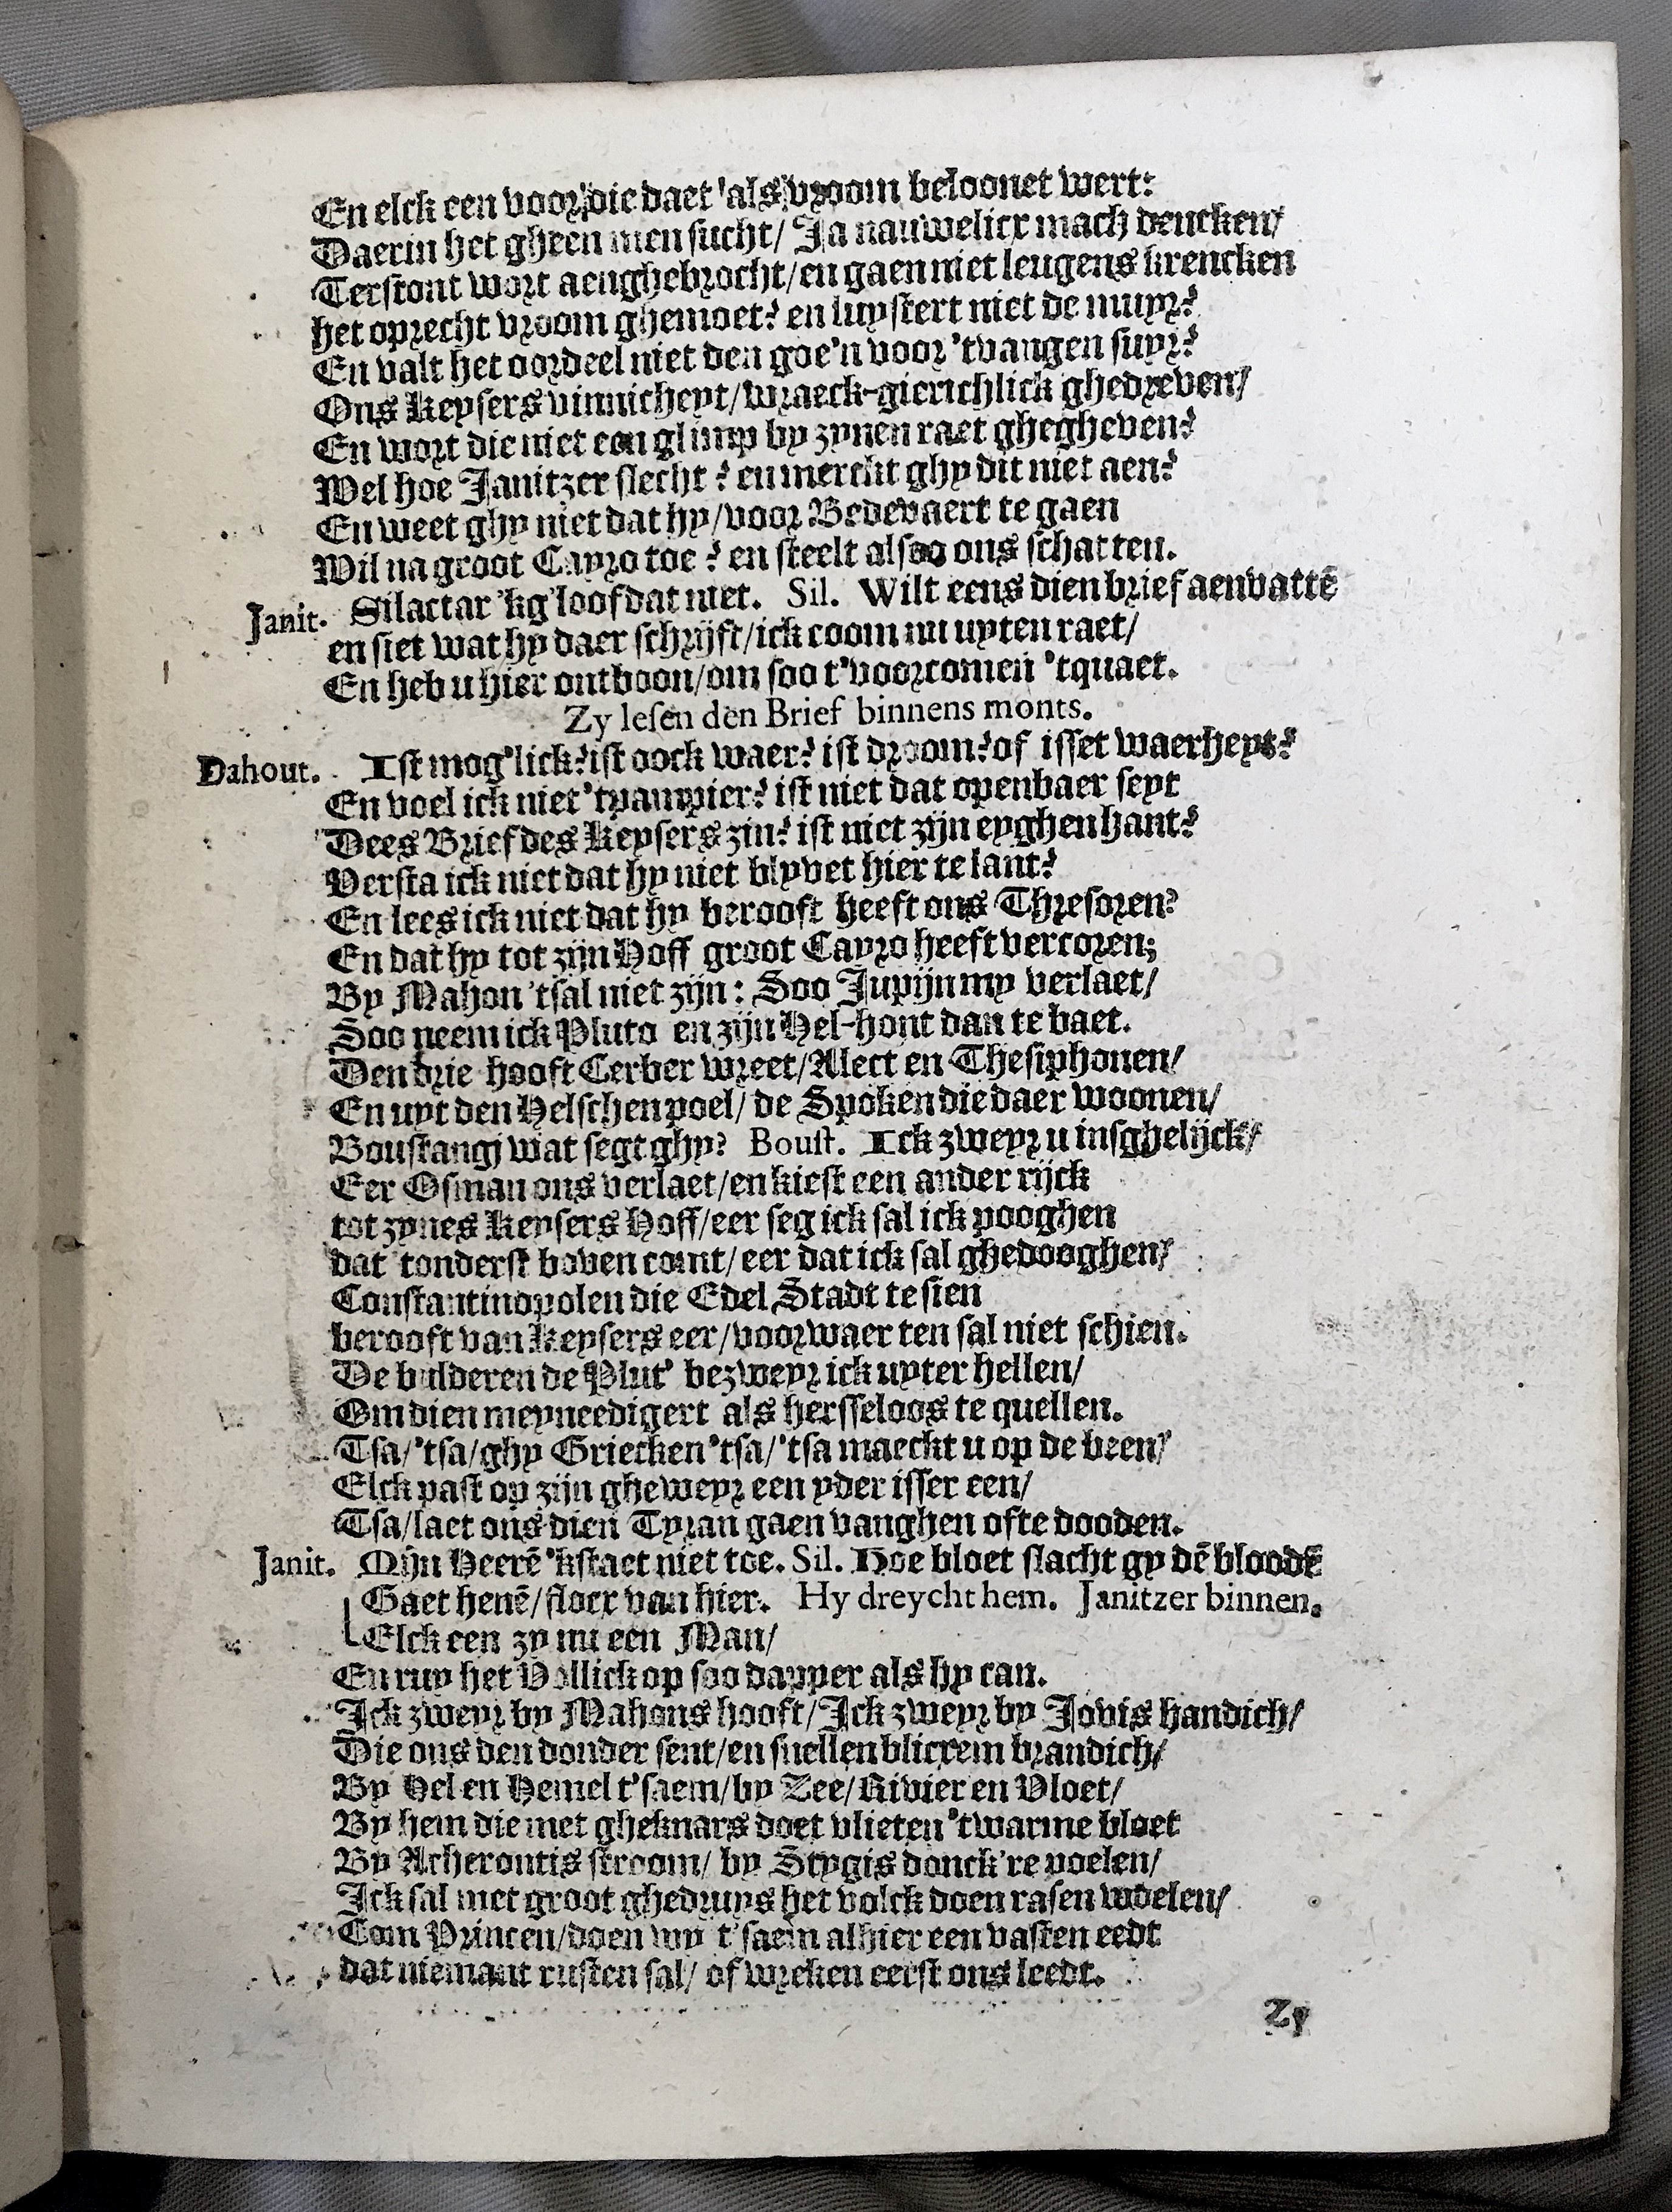 En elck een voor die daet 'als vroom beloonet wert:
Daerin het gheen men sucht/ Ja nauwelicx mach dencken/
Terstont wort aenghebrocht/en gaen niet leugens krencken
het oprecht vroom ghemoet? en luystert niet de muyr?
En valt het oordeel niet den goe'n voor 'tvangen suyr?
Ons Keysers vinnicheyt/wraeck-gierichlick ghedreven/
En wort die niet een glimp by zynen raet ghegheven?
Wel hoe Janitzer slecht? en merckt ghy dit niet aen?
En weet ghy niet dat hy/voor Bedevaert te gaen
Wil na groot Cayro toe? en steelt alsoo ons schatten.
Janit. Silactar 'kg'loof dat niet. Sil. Wilt eens dien brief aenvattē
en siet wat hy daer schrijft/ick coom nu uyten raet/
En heb u hier ontboon/om soo t'voorcomen 'tquaet.
Zy lesen den Brief binnens monts.
Dahout. Ist mog'lick? ist oock waer? ist droom? of isset waerheyt?
En voel ick niet 'tpampier? ist niet dat openbaer seyt
Dees Brief des Keysers zin? ist niet zijn eyghen hant?
Versta ick niet dat hy niet blyvet hier te lant?
En lees ick niet dat hy berooft heeft ons Thresoren?
En dat hy tot zijn Hoff groot Cayro heeft vercoren;
By Mahon 'tsal niet zijn: Soo Jupijn my verlaet/
Soo neem ick Pluto en zijn Hel-hont dan te baet.
Den drie hooft Cerber wreet/Alect en Thesiphonen/
En uyt den Helschen poel/ de Spoken die daer woonen/
Boustangj wat segt ghy? Boust. Ick zweyr u insghelijck/
Eer Osman ons verlaet/en kiest een ander rijck
tot zynes Keysers Hoff/eer seg ick sal ick pooghen
dat 'tonderst boven comt/eer dat ick sal ghedooghen/
Constantinopolen die Edel Stadt te sien
berooft van Keysers eer/voorwaer ten sal niet schien.
De bulderende Plut' bezweyr ick uyter hellen/
Om dien meyneedigert als hersseloos te quellen.
Tsa/'tsa/ghy Griecken 'tsa/'tsa maeckt u op de been/
Elck past op zijn gheweyr een yder isser een/
Tsa/laet ons dien Tyran gaen vanghen ofte dooden.
Janit. Mijn Heerē 'kstaet niet toe. Sil. Hoe bloet slacht gy dē bloodē
Gaet henē/flocx van hier. Hy dreycht hem. Janitzer binnen.
Elck een zy nu een Man/
En ruy het Vollick op soo dapper als hy can.
Ick zweyr by Mahons hooft/Ick zweyr by Jovis handich/
Die ons den donder sent/en snellen blicxem brandich/
By Hel en Hemel t'saem/by Zee/Rivier en Vloet/
By hem die met gheknars doet vlieten 'twarme bloet
By Acherontis stroom/ by Stygis donck're poelen/
Ick sal met groot ghedruys het volck doen rasen woelen/
Com Princen/doen wy t'saem alhier een vasten eedt
dat niemant rusten sal/ of wreken eerst ons leedt.
Zy